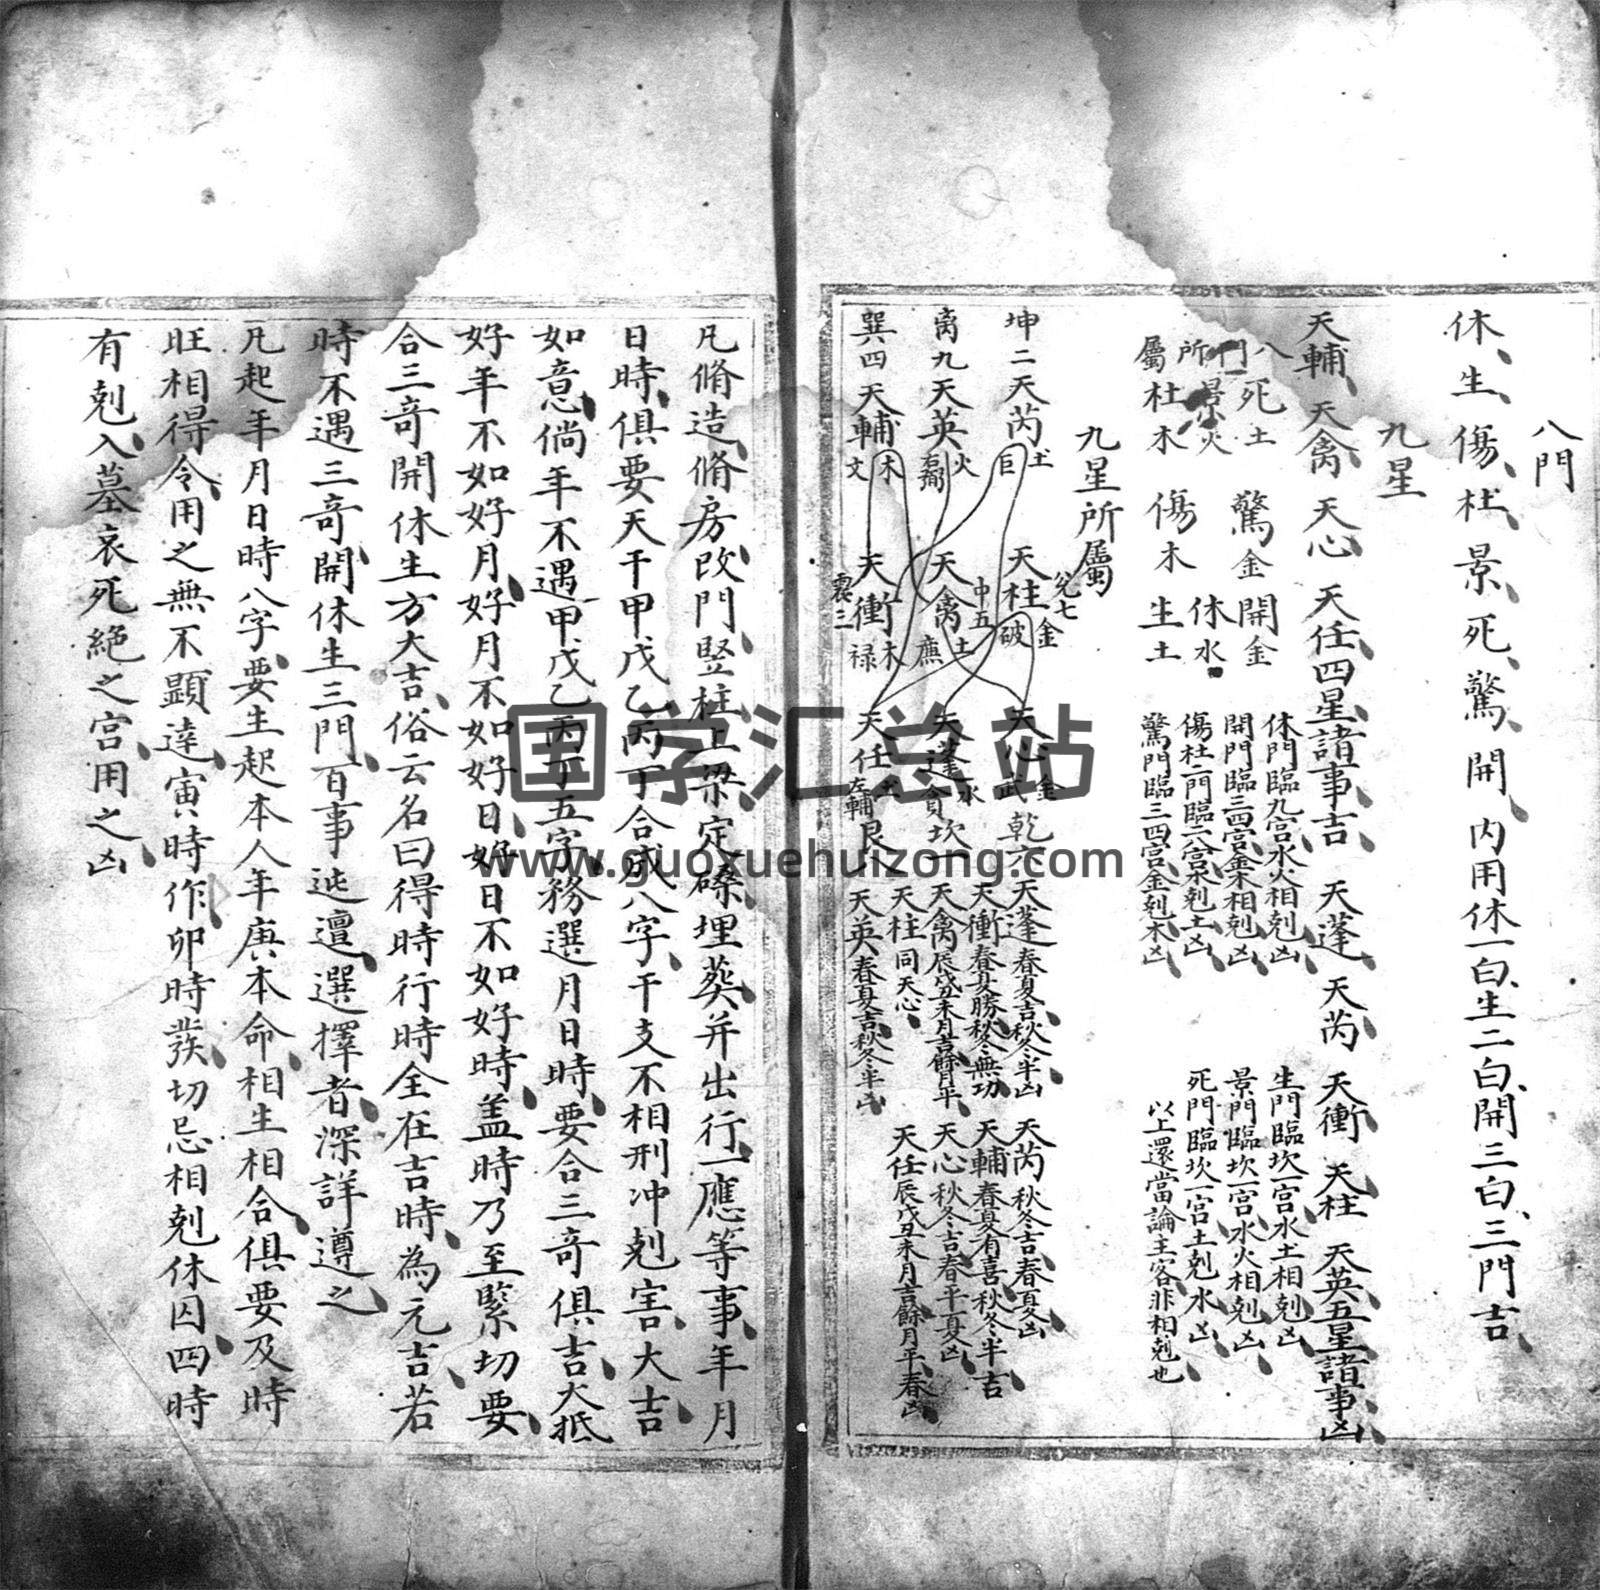 八門
休生傷杜景死驚開 內用休一白生二白開三白三門吉
九星
天輔 天禽 天心 天任四星諸事吉 天蓬 天芮 天衝 天柱 天英五星諸事凶
八門所屬
死土 驚金 開金
景火 休水
杜木 傷木 生土
休門臨九宮水火相剋凶
開門臨三四宮金木相剋凶
傷杜二門臨二八宮木剋土凶
驚門臨三四宮金剋木凶
生門臨坎一宮水土相剋凶
景門臨坎一宮水火相剋凶
死門臨坎一宮土剋水凶
以上還當論主客非相剋也
九星所屬
坤二天芮 土 巨 天柱 兌七 金 破 天心 金 武 乾六
離九天英 火 天禽 中五 土 廉 天蓬 水 貪 坎一
巽四天輔 木 文 天衝 震三 木 祿 天任 土 左輔 艮八
天蓬春夏吉秋冬半凶 天芮秋冬吉春夏凶
天衝春夏勝秋冬無功 天輔春夏有喜秋冬半吉
天禽辰戌丑未月吉餘月平 天心秋冬吉春平夏凶
天柱同天心 天任辰戌丑未月吉餘月平春凶
天英春夏吉秋冬半凶
凡脩造脩房改門竪柱上梁定磉埋葬并出行一應等事年月
日時俱要天干甲戊乙丙丁合成八字干支不相刑冲剋害大吉
如意倘年不遇甲戊乙丙丁五字務選月日時要合三奇俱吉大抵
好年不如好月好月不如好日好日不如好時盖時乃至緊切要
合三奇開休生方大吉俗云名曰得時行時全在吉時為元吉若
時不遇三奇開休生三門百事迍邅選擇者深詳遵之
凡起年月日時八字要生起本人年庚本命相生相合俱要及時
旺相得令用之無不顯達寅時作卯時發切忌相剋休囚四時
有剋入墓衰死絕之宮用之凶
国学汇总站
www.guoxuehuizong.com